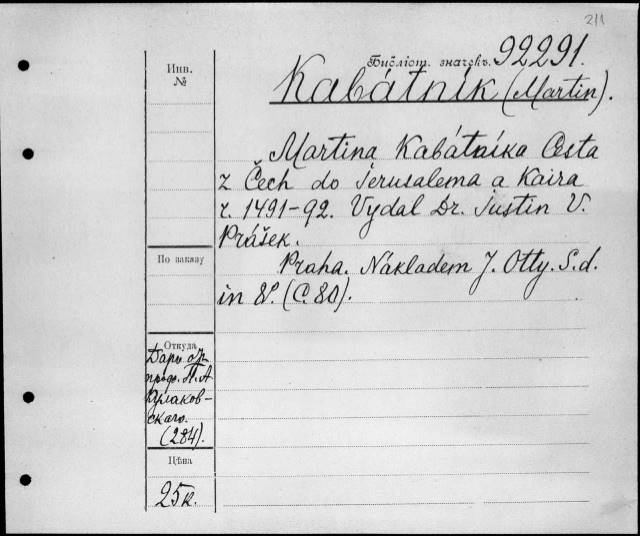 211
Библіот. значекъ. 92291.
Инв.
№
Kabátník (Martin).
Martina Kabátníka Cesta
z Čech do Jerusalema a Kaira
r. 1491-92. Vydal Dr. Justin V.
Prášek.
По заказу
Praha. Nákladem J. Otty. S. d.
in 8°. (C. 80).
Откуда
Даръ отъ
проф. П. А
Кулаков-
скаго.
(284).
Цѣна
25к.